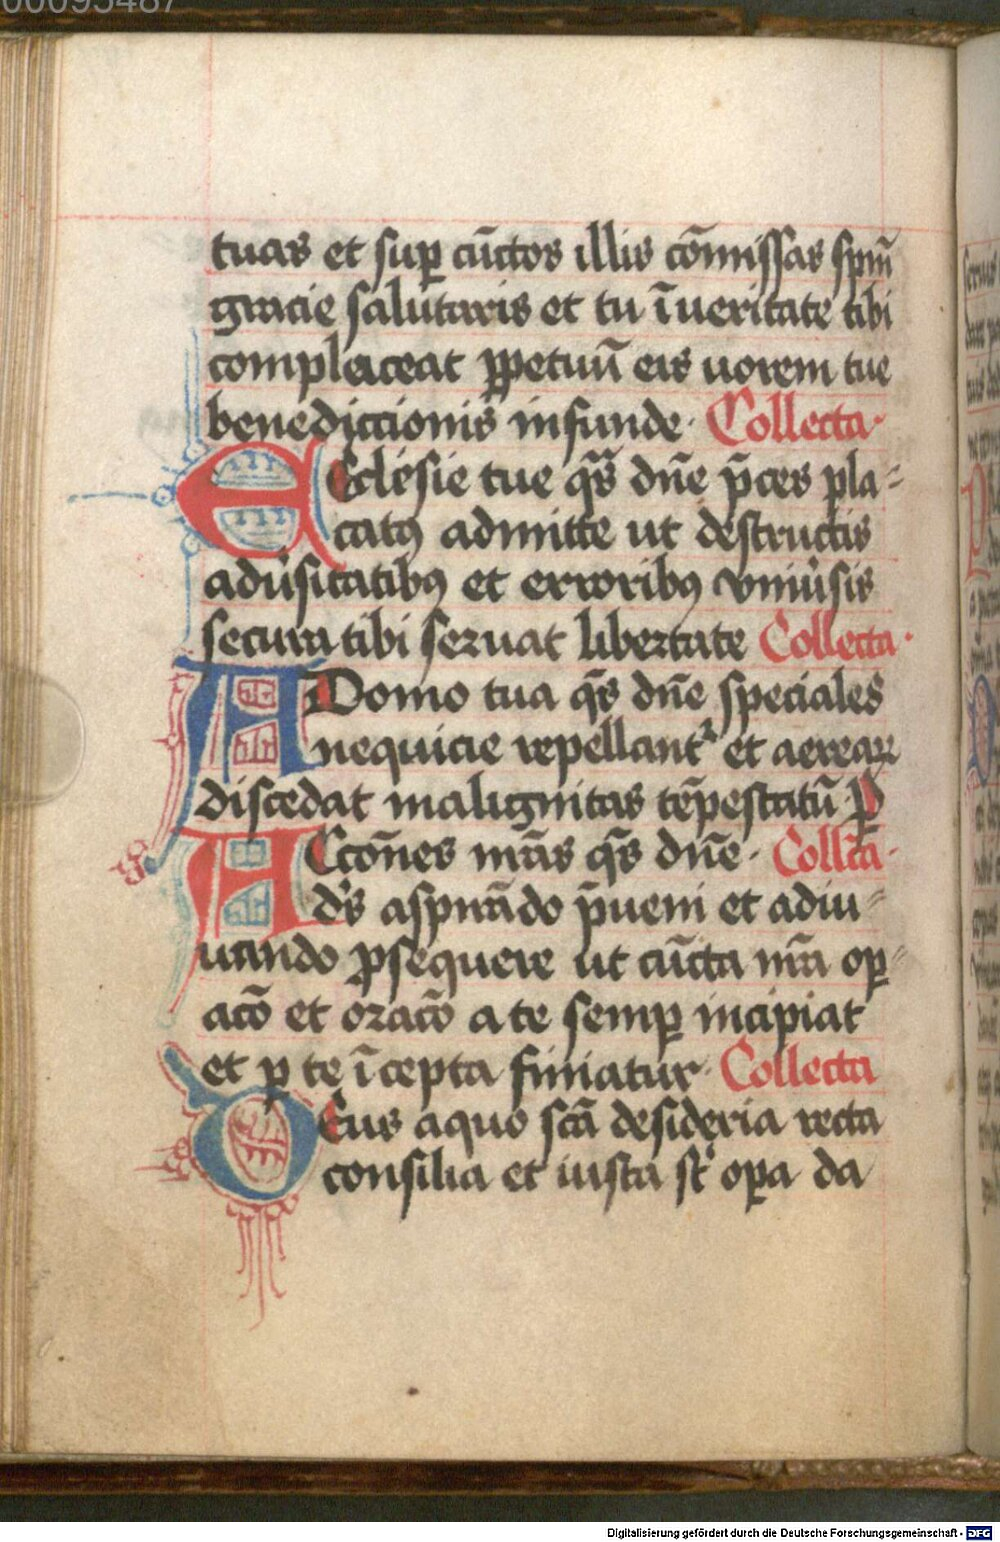 00095487
tuas et sup̱ cūctos illis cōmissas spm̄
gracie salutaris et tu ī ueritate tibi
complaceat ꝑpetuū eis uorem tue
benediccionis infunde · Collecta ·
Ecclesie tue qs̄ dn̄e p̄ces pla⸗
catꝯ admitte ut destructis
adūsitatibꝯ et erroribꝯ vniūsis
secura tibi seruat libertate Collecta ·
A Domo tua qs̄ dn̄e speciales
nequicie repellantᷣ et aerearꝝ
discedat malignitas tēpestatū · P̱
Accōnes nr̄as qs̄ dn̄e · Collc̄ta ·
ds̄ aspirādo p̄ueni et adiu⸗
uando ꝓsequere ut cūcta nr̄a oꝑ⸗
acō et oracō a te semꝑ incipiat
et ꝑ te īcepta finiatur · Collecta
Deus a quo sc̄a desideria recta
consilia et iusta st̄ oꝑa da
Digitalisierung gefördert durch die Deutsche Forschungsgemeinschaft - DFG